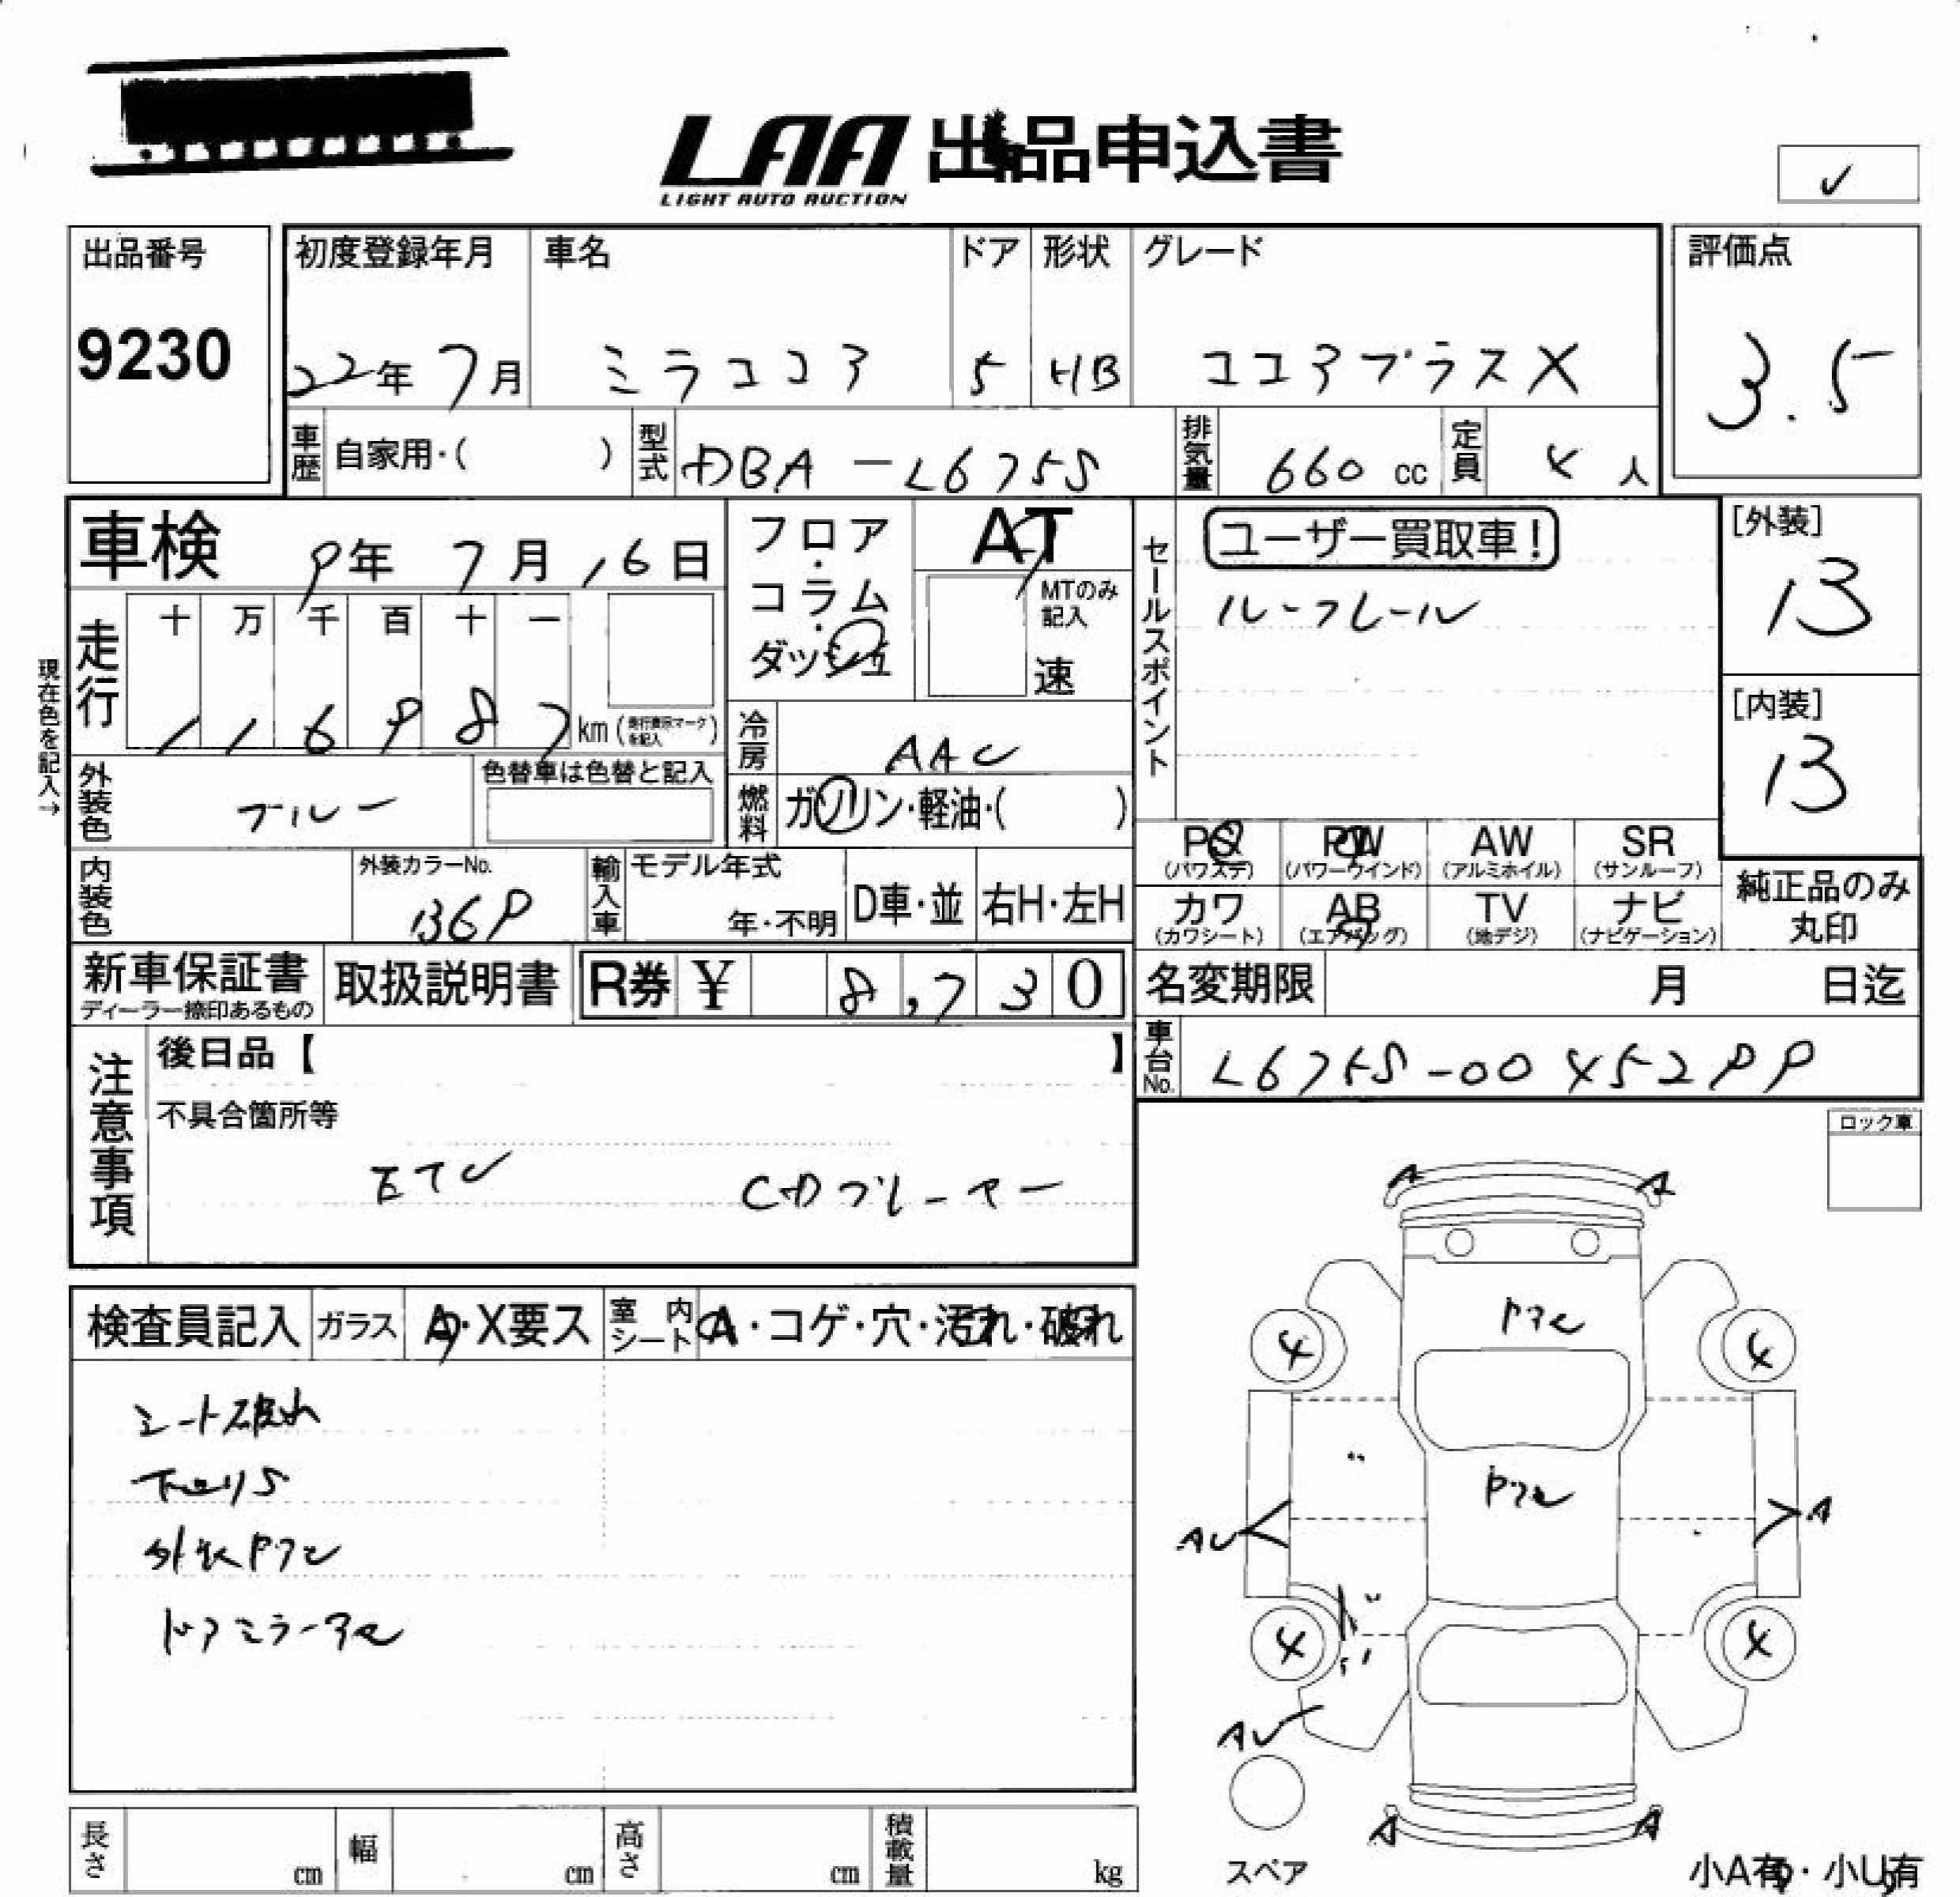 LAA 出品申込書
LIGHT AUTO AUCTION
✓
出品番号
9230
初度登録年月
22年 7月
車名
ミラココア
ドア
5
形状
HB
グレード
ココアプラスX
評価点
3.5
車歴 自家用・( )
型式 DBA-L675S
排気量 660 cc
定員 4 人
車検 9年 7月 16日
フロア・コラム・ダッシュ
AT
MTのみ記入
速
セールスポイント
ユーザー買取車!
ルーフレール
[外装]
13
[内装]
13
現在色を記入→
走行
十 万 千 百 十 一
1 1 6 9 8 7 km (走行表示マークを記入)
冷房 AAC
外装色 ブルー
色替車は色替と記入
燃料 ガソリン・軽油・( )
PS (パワステ)
PW (パワーウインド)
AW (アルミホイル)
SR (サンルーフ)
カワ (カワシート)
AB (エアバッグ)
TV (地デジ)
ナビ (ナビゲーション)
純正品のみ丸印
内装色
外装カラーNo.
B69
輸入車
モデル年式
年・不明
D車・並
右H・左H
新車保証書
ディーラー捺印あるもの
取扱説明書
R券 ¥ 8,730
名変期限 月 日迄
車台No. L675S-0045299
注意事項
後日品【 】
不具合箇所等
ETC CDプレーヤー
ロック車
検査員記入
ガラス A・X要ス
室内シート A・コゲ・穴・汚れ・破れ
シート破れ
下回りS
外装ボケ
ドアミラーアセ
A A
4 4
AU A
4 4
AU
A A
スペア
小A有・小U有
長さ cm
幅 cm
高さ cm
積載量 kg